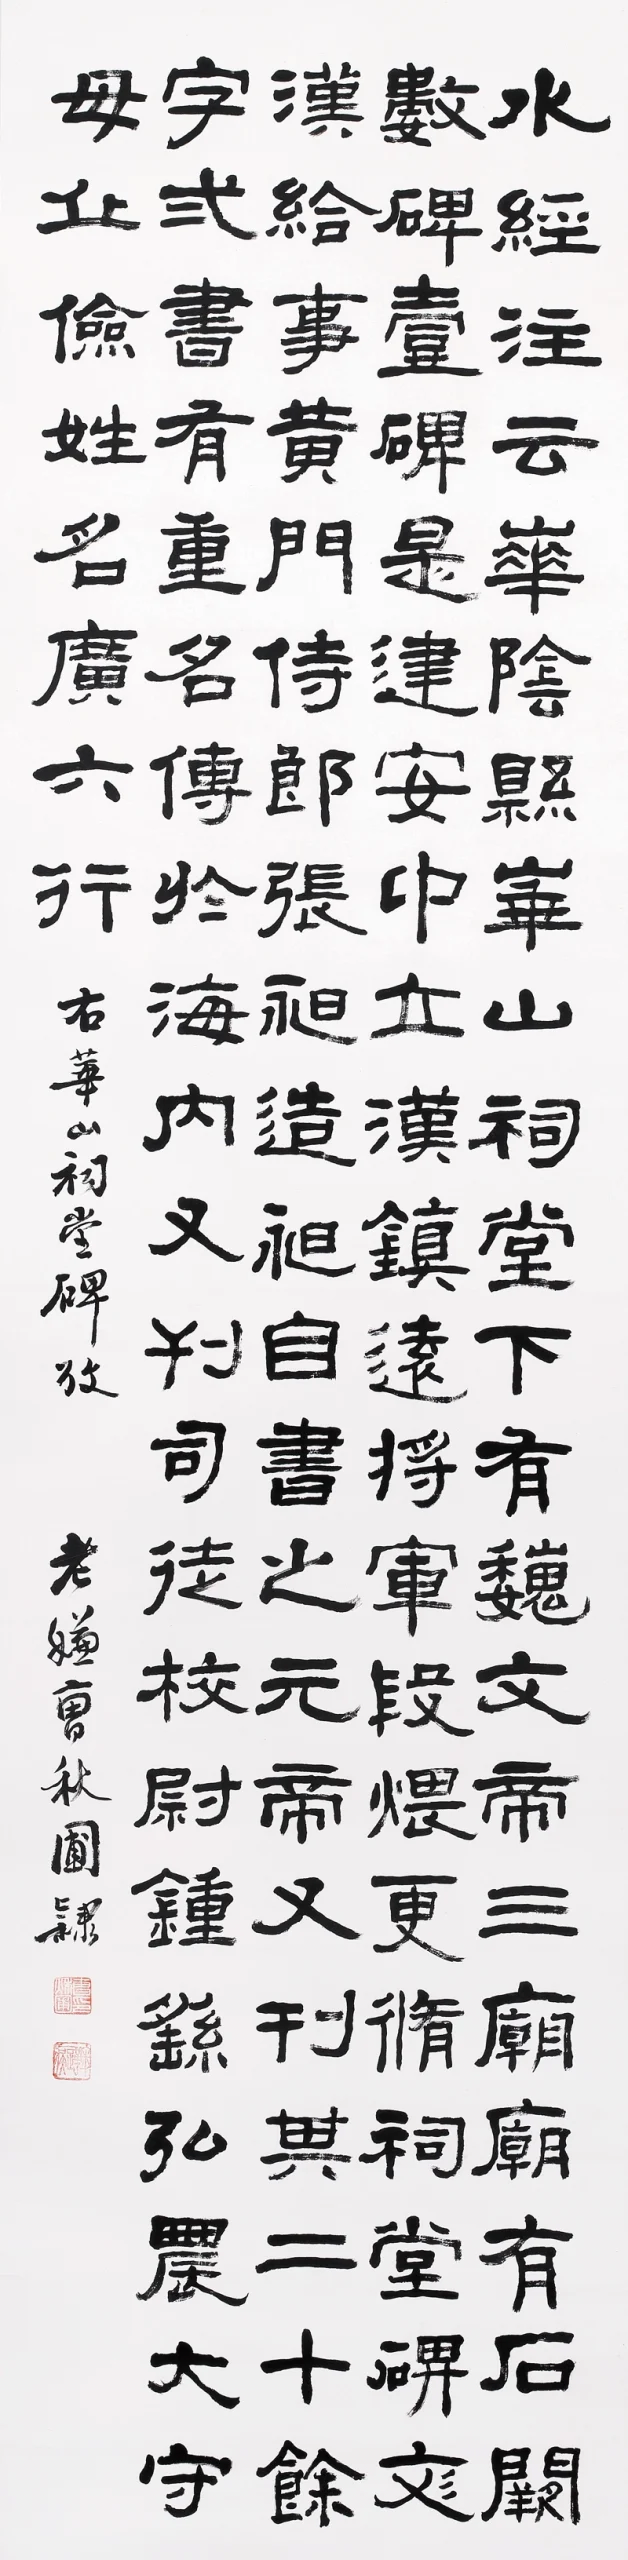 水經注云華陰縣崋山祠堂下有魏文帝三廟廟有石闕
數碑壹碑是建安中立漢鎮遠將軍段煨更脩祠堂碑文
漢給事黃門侍郎張昶造昶自書之元帝又刊其二十餘
字弍書有重名傳於海內又刊司徒校尉鍾繇弘農大守
毋丘儉姓名廣六行
右華山祠堂碑攷
老嫌曹秋圃隸